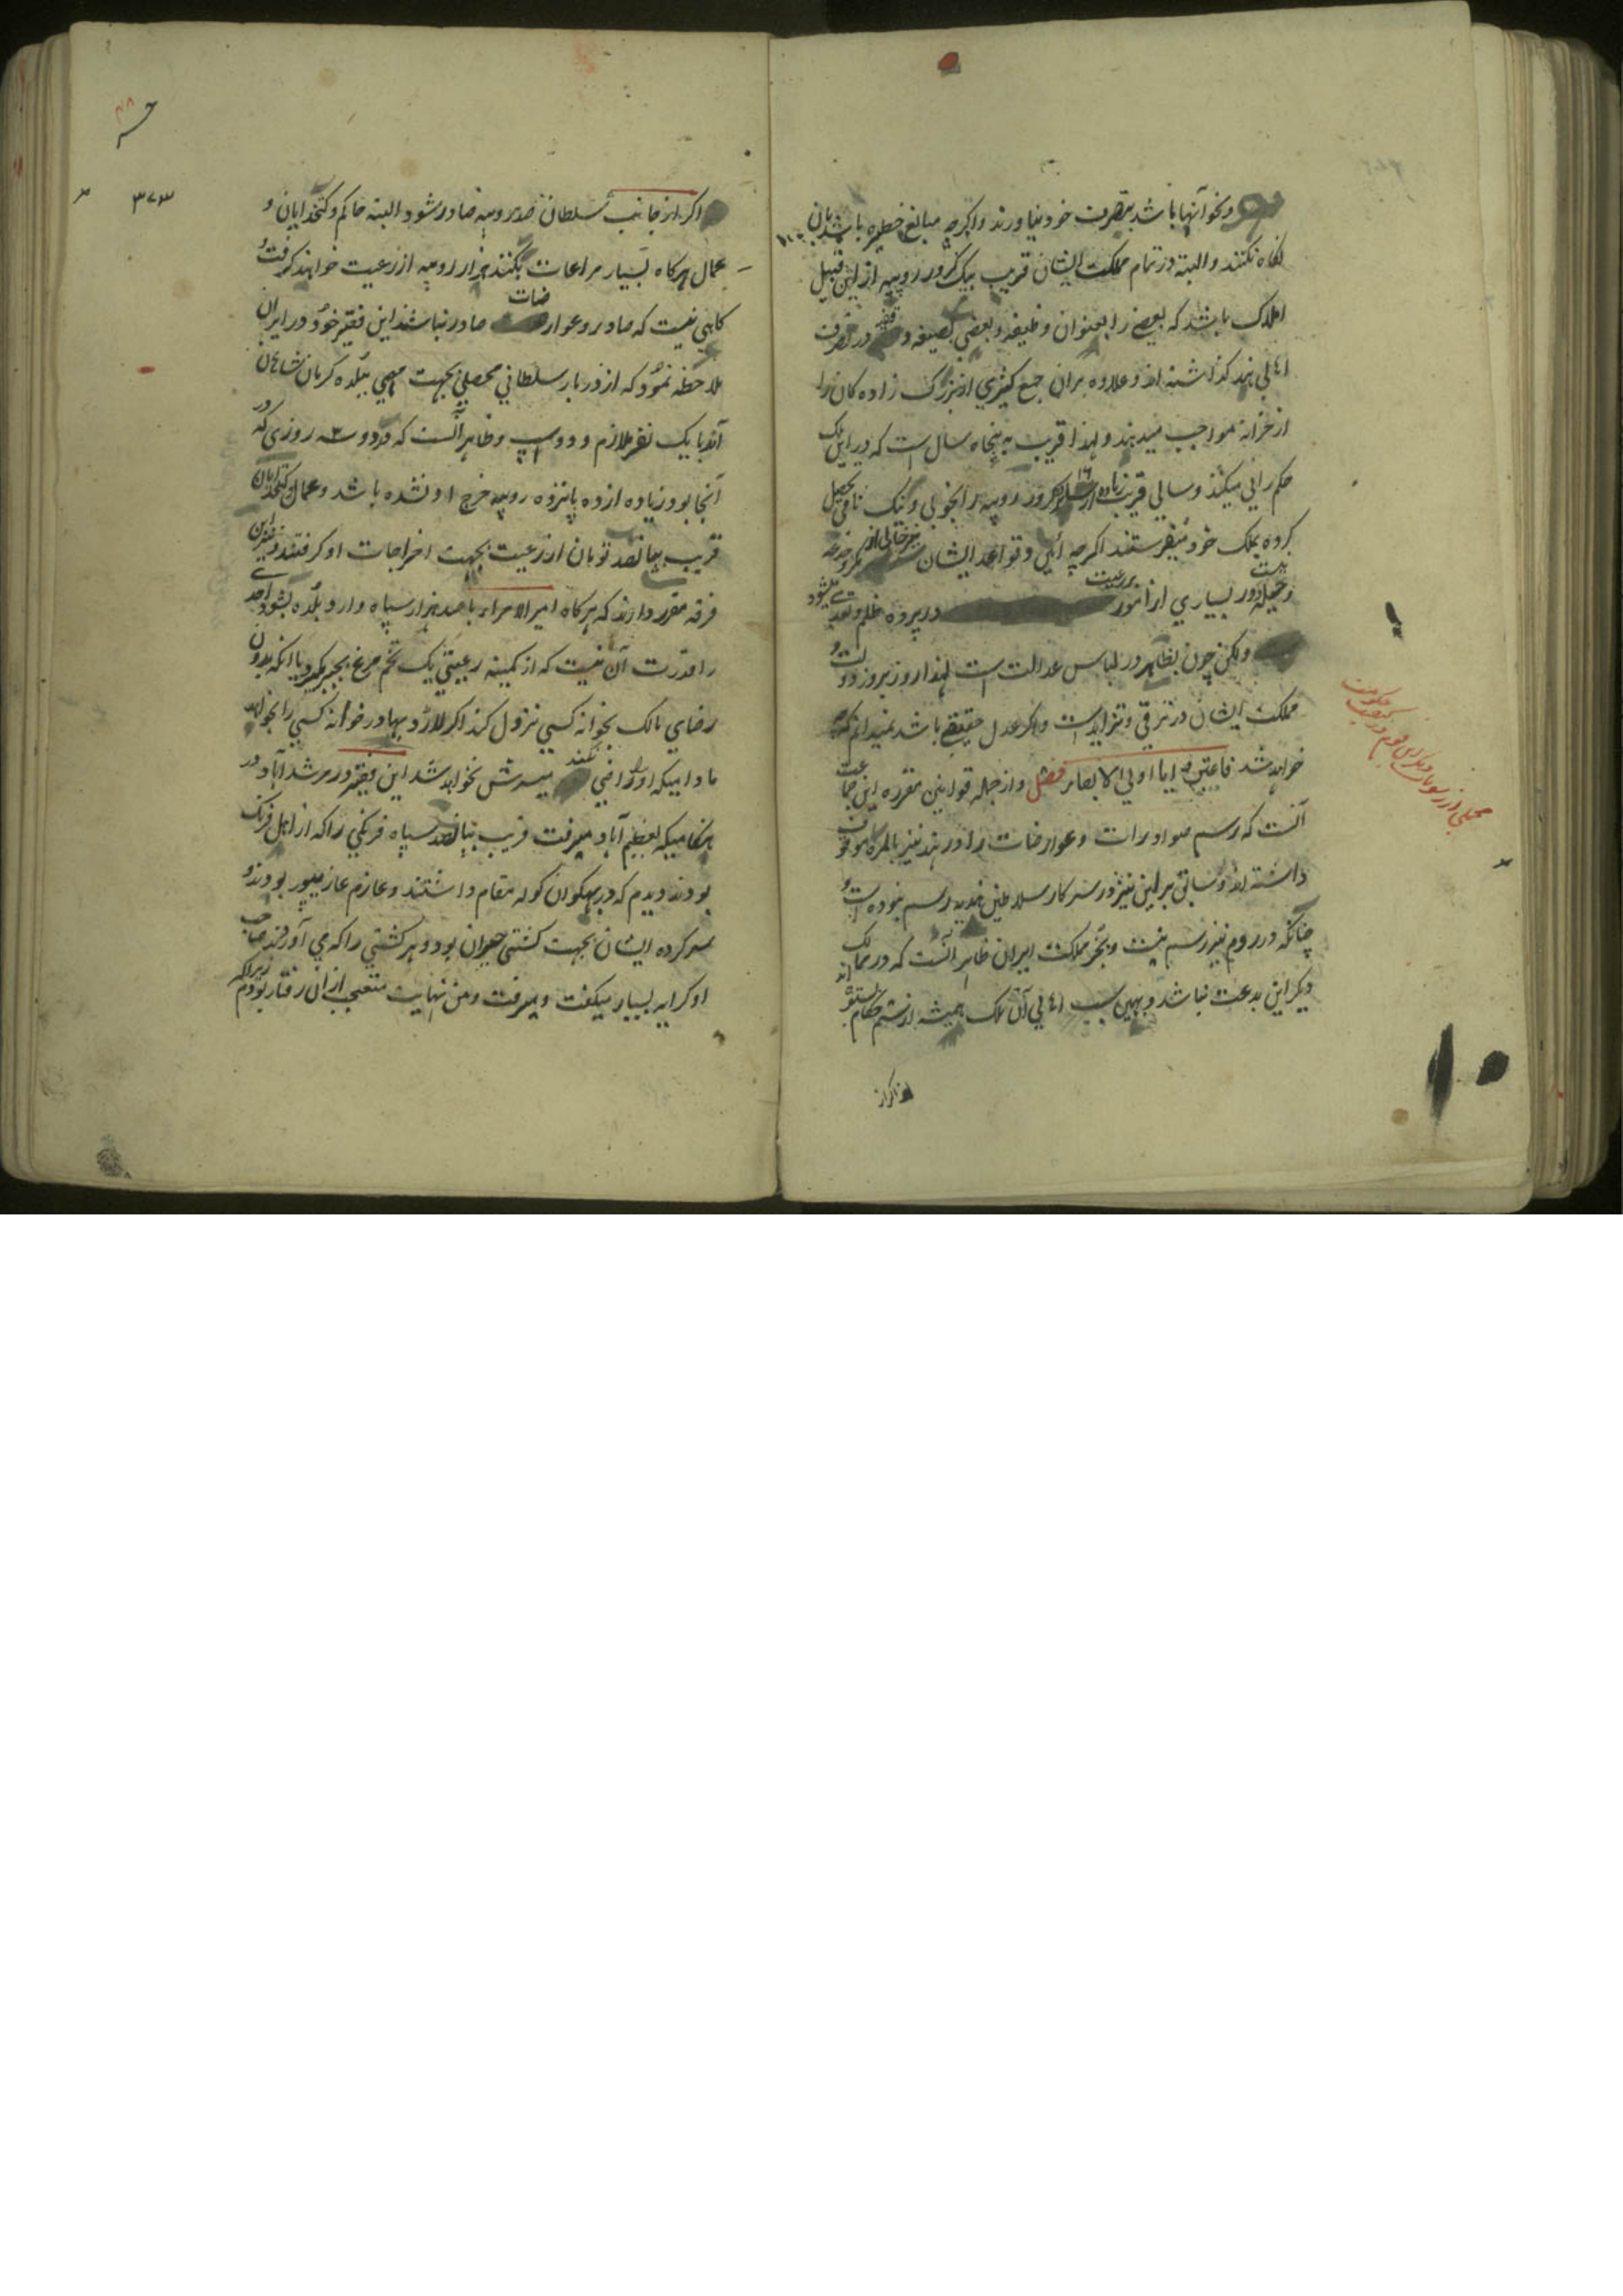 ونحو آنها باشد بتصرف خود نیاورند واکرچه مبالغ خطیره باشد بان
نکاه نکنند والبته در تمام مملکت ایشان قریب بیک کرور روپیه از این قبیل
املاک باشد که بعضی را بعنوان وظیفه و بعضی بصیغه وقف در تصرف
اهالی هند کذاشته اند وعلاوه بران جمع کثیری از بزرک زاده کان را
از خزانه مواجب میدهند ولهذا قریب به پنجاه سال است که در این ملک
حکم رانی میکنند وسالی قریب کرور روپیه را بخوبی ونیک نامی تحصیل
کرده بملک خود میفرستند اکرچه آئین وقواعد ایشان نیز خالی از مکر وخدعه
وحیله نیست ودر بسیاری از امور بر رعیت در پرده ظلم وتعدی میشود
ولکن چون بظاهر در لباس عدالت است لهذا روز بروز دولت و
مملکت ایشان در ترقی وتزاید است واکر عدل حقیقی باشد نمیدانم که چه
خواهد شد فاعتبروا یا اولی الابصار فصل واز جمله قوانین مقرره این جماعت
آنست که رسم صوادرات وعوارضات را در هند نیز بالمره موقوف
داشته اند وسابق بر این نیز در سرکار سلاطین هندیه رسم نبوده است و
چنانکه در روم نیز رسم نیست وبجز مملکت ایران ظاهر آنست که در ممالک
دیکر این بدعت نباشد وبهمین سبب اهالی آن ملک همیشه از ستم حکام
اکر از جانب سلطان صد روپیه صادر شود البته حاکم وکدخدایان و
عمال هرکاه بسیار مراعات بکنند هزار روپیه از رعیت خواهند کرفت و
کاهی نیست که صادر وعوارضات صادر نباشد این فقیر خود در ایران
ملاحظه نمود که از دربار سلطانی محصلی بجهت مهمی ببلده کرمان شاهان
آمد با یک نفر ملازم و دو اسپ وظاهر آنست که در دو سه روزی که در
آنجا بود زیاده از ده پانزده روپیه خرج او نشده باشد وعمال وکدخدایان
قریب بپانصد تومان از رعیت بجهت اخراجات او کرفتند واین
فرقه مقرر دارند که هرکاه امیر الامراء با صد هزار سپاه وارد بلده بشود احدی
را قدرت آن نیست که از کمینه رعیتی یک تخم مرغ بجبر بکیرد یا انکه بدون
رضای مالک بخانه کسی نزول کند اکر لارد بهادر خانه کسی را بخواهد
مادامیکه او را راضی نکند میسرش نخواهد شد این فقیر در مرشد آباد در
هنکامیکه بعظیم آباد میرفت قریب بپانصد سپاه فرنکی را که از اهل فرنک
بودند دیدم که در بهکوان کوله مقام داشتند وعازم غازیپور بودند و
سرکرده ایشان بجهت کشتی حیران بود وهر کشتی را که می آوردند صاحب
او کرایه بسیار میکفت ومیرفت ومن نهایت متعجب از آن رفتار بودم زیرا که
۳۷۳